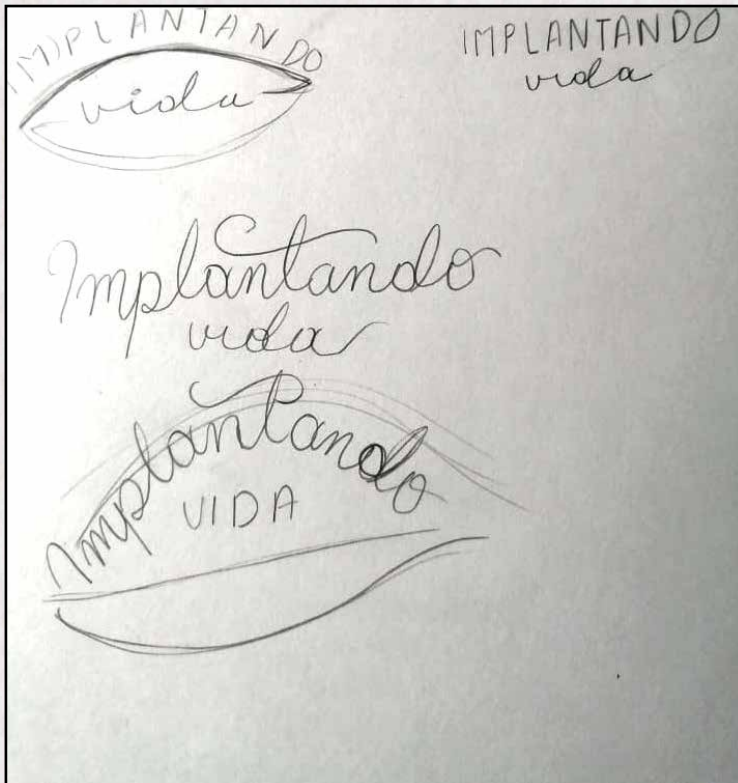 IMPLANTANDO
vida
IMPLANTANDO
vida
Implantando
vida
Implantando
VIDA